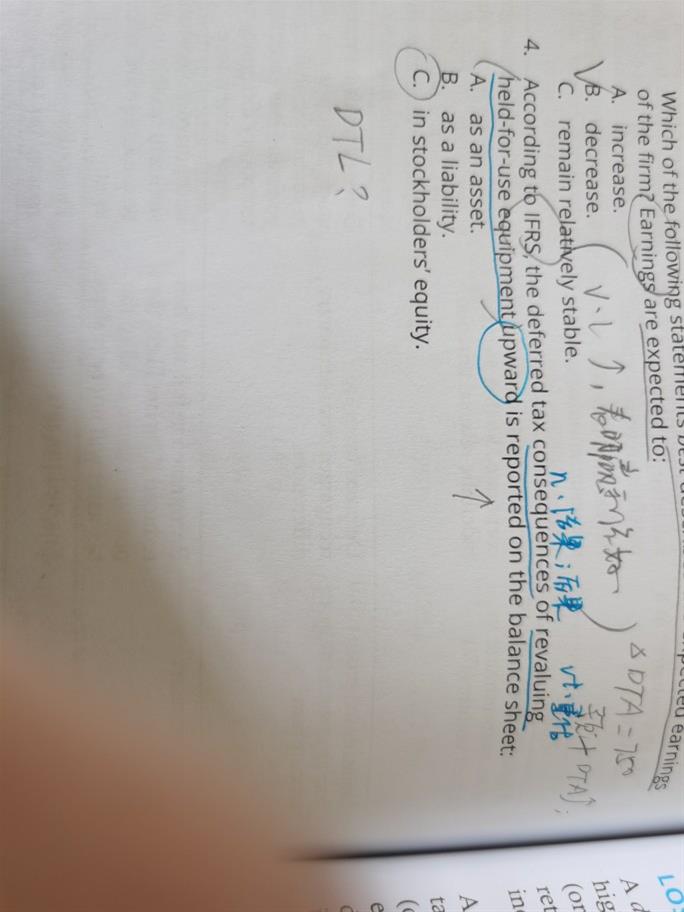 Which of the following statements best
of the firm? Earnings are expected to:
earnings
A. increase.
B. decrease.
C. remain relatively stable.
V.L↑,
ΔDTA = 750
DTA↑;
n.结果;后果
vt.重估
4. According to IFRS, the deferred tax consequences of revaluing
held-for-use equipment upward is reported on the balance sheet:
A. as an asset.
B. as a liability.
C. in stockholders' equity.
DTL?
LO
A
hig
(or
ret
in
A.
ta
(
e